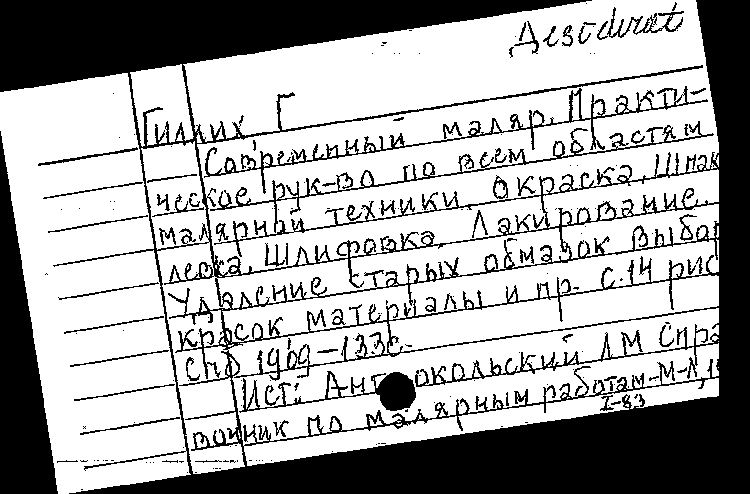 Дезidirat
Гиллих Г
Современный маляр. Практи-
ческое рук-во по всем областям
малярной техники. Окраска, Шпак
левка, Шлифовка, Лакирование.
Удаление старых обмазок Выбор
красок материалы и пр. с.14 рис
СПб 1909-133с.
Ист: Ант окольский ЛМ Спра
вочник по малярным работам-М-Л,
I-83